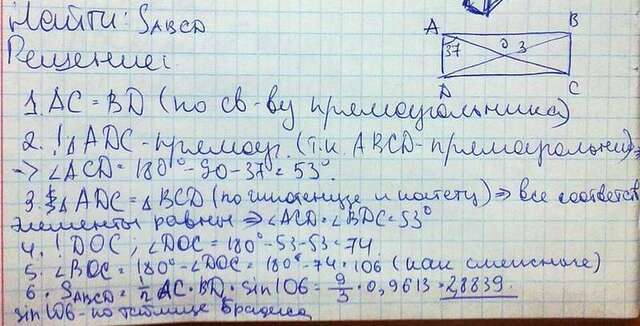 Найти: SABCD
Решение:
A B
37 O 3
D C
1. AC = BD (по св-ву прямоугольника)
2. ! △ ADC - прямоуг. (т.к. ABCD - прямоугольник) =>
-> ∠ACD = 180° - 90 - 37 = 53°.
3. △ ADC = △ BCD (по гипотенузе и катету) => все соответств
элементы равны => ∠ACD = ∠BDC = 53°
4. ! DOC; ∠DOC = 180° - 53 - 53 = 74
5. ∠BOC = 180° - ∠DOC = 180° - 74 = 106 (как смежные)
6. SABCD = 1/2 AC · BD · sin106 = 9/3 · 0,9613 = 2,8839.
sin106 - по таблице Брадиса